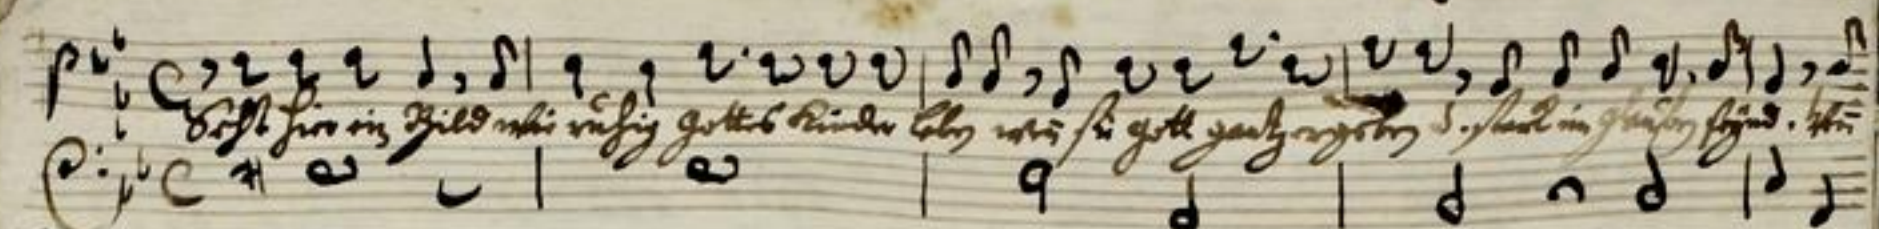 Seht hier ein Bild wie ruhig Gottes Kinder leben wen sie Gott gantz ergeben u. stark im glauben seynd. Wen